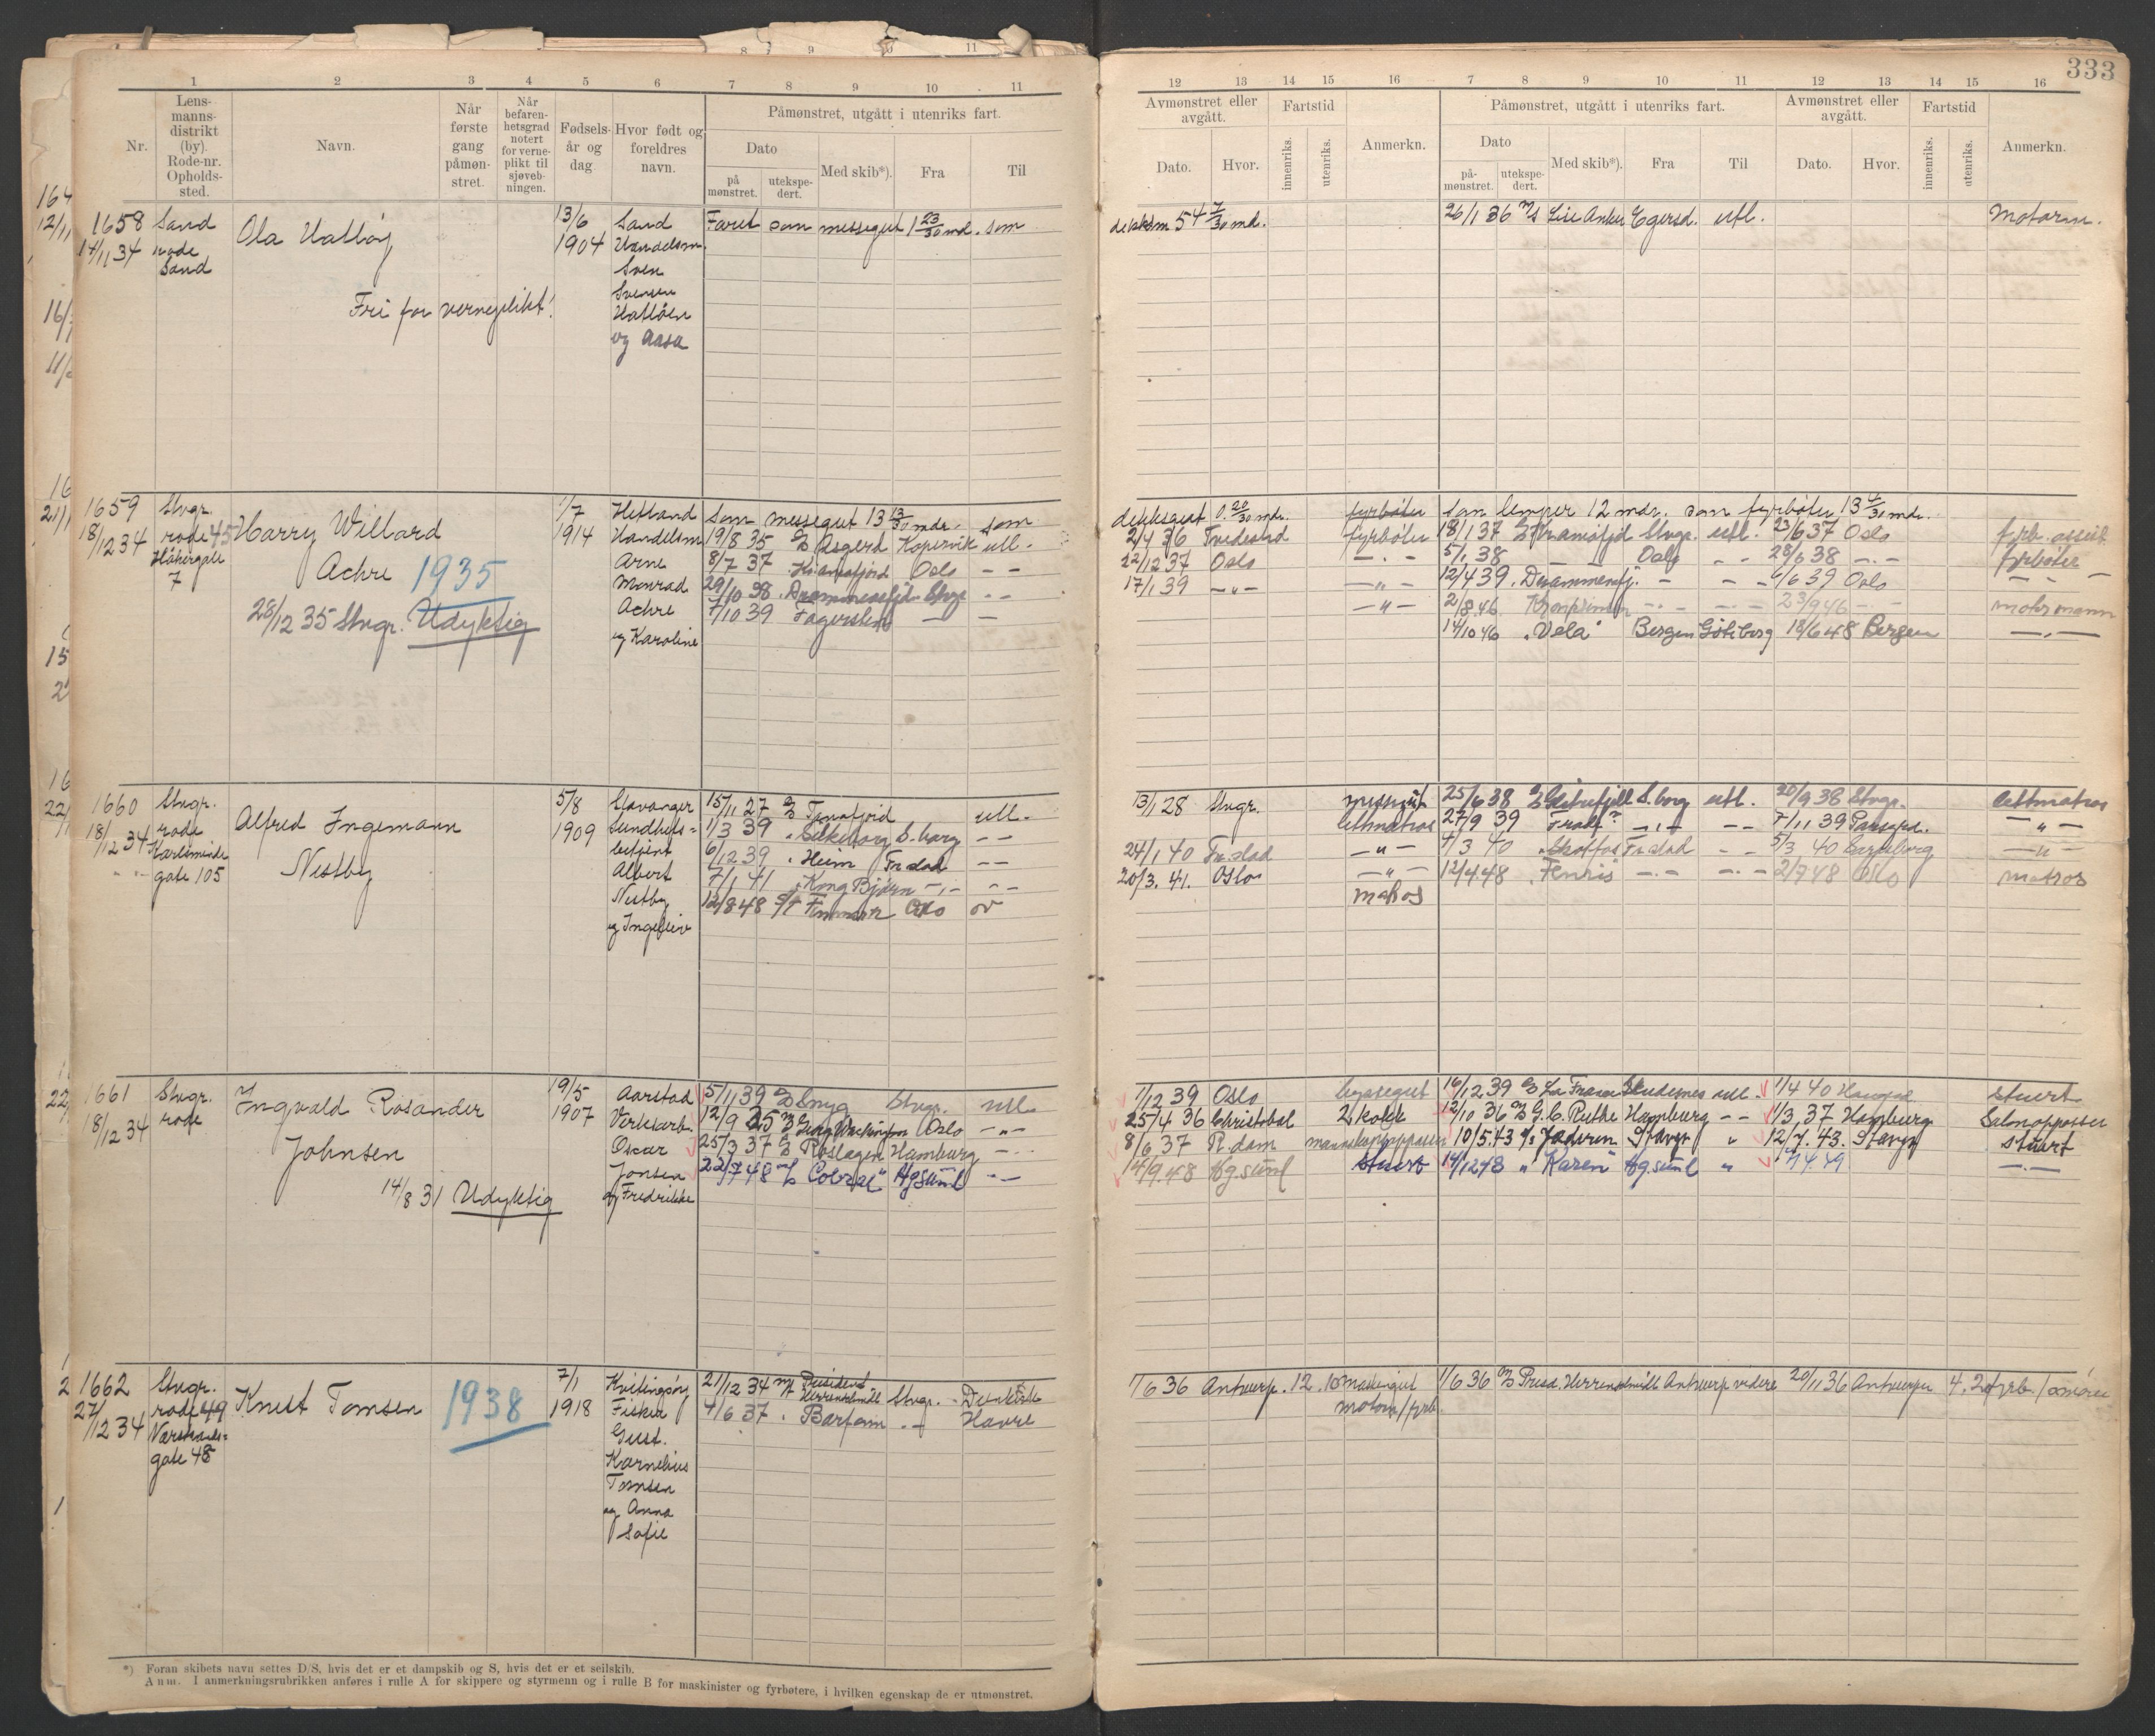 333
1 2 3 4 5 6 7 8 9 10 11
Nr.
Lens-
manns-
distrikt
(by).
Rode-nr.
Opholds-
sted.
Navn.
Når
første
gang
påmøn-
stret.
Når
befaren-
hetsgrad
notert
for verne-
plikt til
sjøveb-
ningen.
Fødsels-
år og
dag
Hvor født og
foreldres
navn.
Påmønstret, utgått i utenriks fart.
Dato
på
mønstret.
utekspe-
dert.
Med skib*).
Fra
Til
12 13 14 15 16 7 8 9 10 11 12 13 14 15 16
Avmønstret eller
avgått.
Dato.
Hvor.
Fartstid
innenriks.
utenriks.
Anmerkn.
Påmønstret, utgått i utenriks fart.
Dato
på-
mønstret.
utekspe-
dert.
Med skib*).
Fra
Til
Avmønstret eller
avgått.
Dato.
Hvor.
Fartstid
innenriks.
utenriks.
Anmerkn.
1658
14/11 34
Sand
rode
Sand
Ola Hatløy
Fri for verneplikt!
13/6
1904
Sand
Handelsm.
Sven
Svensen
Hatløen
og Aasa
Faret som messegut 1 23/30 md. som
dekksm 54 7/30 md.
26/1 36 M/S Lise Anker Egersd. utl.
Motorm.
1659
18/12 34
Stvgr.
rode 45
Håkorgate
7
Harry Willard
Achre 1935
28/12 35 Stvgr. Udyktig
1/7
1914
Hetland
Handelsm
Arne
Monrad
Achre
og Karoline
Som messegut 13 13/30 mdr. som
19/8 35 D/S Asgerd Kopervik utl.
8/7 37 Kr.anafjord Oslo - -
29/10 38 Drammensfjd. Stvgr - -
7/10 39 Fagersten - -
dekksgut 0. 20/30 mdr. fyrbøter
2/4 36 Tvedestrd fyrbøter
22/12 37 Oslo - . -
17/1 39 - " - - " -
- " -
som lemper 12 mdr. som fyrbøter 13 4/30 mdr.
18/1 37 D/S Kr.anafjd Stvgr. utl. 23/6 37 Oslo fyrb. assist
5/1 38 Oslo - - 28/6 38 - . - fyrbøter
12/4 39 Drammensfj. - - - 6/6 39 Oslo - " -
2/8 46 Kronprinsen - . - - . - 23/9 46 - . - motormann
14/10 46 "Vela" Bergen Göteborg 18/6 48 Bergen - " -
1660
18/12 34
Stvgr.
rode
Karlsminde
gate 105
Alfred Ingemann
Nestby
5/8
1909
Stavanger
Sundhets=
betjent
Albert
Nestby
og Ingeleiv
15/11 27 D/S Tanafjord utl.
1/3 39 " Silkeborg S.borg - -
6/12 39 " Heim Tr.dad - -
7/1 41 " Kong Bjørn - . - - -
12/8 48 S/T Finnmark Oslo ov
13/1 28 Stvgr. messegut
lettmatros
24/1 40 Tr.dad - " -
20/3. 41. Oslo - " -
matros
25/6 38 D/S Gjetefjell S.borg utl. 20/9 38 Stvgr. lettmatros
27/9 39 Trolf - . - - - 7/11 39 Parsgd. - " -
7/3 40 Skotfos Tr.dad - - 5/3 40 Sarpsborg - " -
12/4 48 "Fenris - . - - . - 2/7 48 Oslo matros
1661
18/12 34
Stvgr.
rode
Ingvald Rosander
Johnsen
14/8 31 Udyktig
19/5
1907
Aarstad
Verksarb.
Oscar
Jonsen
og Fredrikke
5/11 39 D/S Snyg Stvgr. utl.
12/9 35 M/S Georg Washington Oslo - " -
25/3 37 D/S Roslagen Hamburg - . -
22/7 48 M/S "Cobral" Hgsund - -
1/12 39 Oslo byssegut
25/4 36 Christobal 2 kokk
8/6 37 R.dam mannskapsoppasser
4/9.48 Hg.sund Stuert
16/12 39 D/S La France Skudenes utl. 1/4 40 stuert
12/10 36 D/S G.C. Ruthe Hamburg - - 11/3 37 Hamburg Salonoppasser
10/5.43 D/S Jaderen Stavgr " 12/7.43. Stavgr stuart
14/12 48 "Karen" Hg.sund " 7/4.49 - . -
1662
27/12 34
Stvgr.
rode 49
Værstads=
gate 48
Knut Tomsen 1938
7/1
1918
Kvitingsøy
Fisker
Gust.
Kornelius
Tomsen
og Anna
Sofie
21/12 34 M/T President Herrenschmidt Stvgr. - Dunkirk
4/6 37 " Barfonn . - Havre
1/6 36 Antwerp. 12. 10 maskingut
motorm/fyrb
1/6 36 M/S Presd. Herrenschmidt Antwerp videre 20/11 36 Antwerpen 4. 20 fyrb. / smører
*) Foran skibets navn settes D/S, hvis det er et dampskib og S, hvis det er et seilskib.
Anm. I anmerkningsrubrikken anføres i rulle A for skippere og styrmenn og i rulle B for maskinister og fyrbøtere, i hvilken egenskap de er utmønstret.